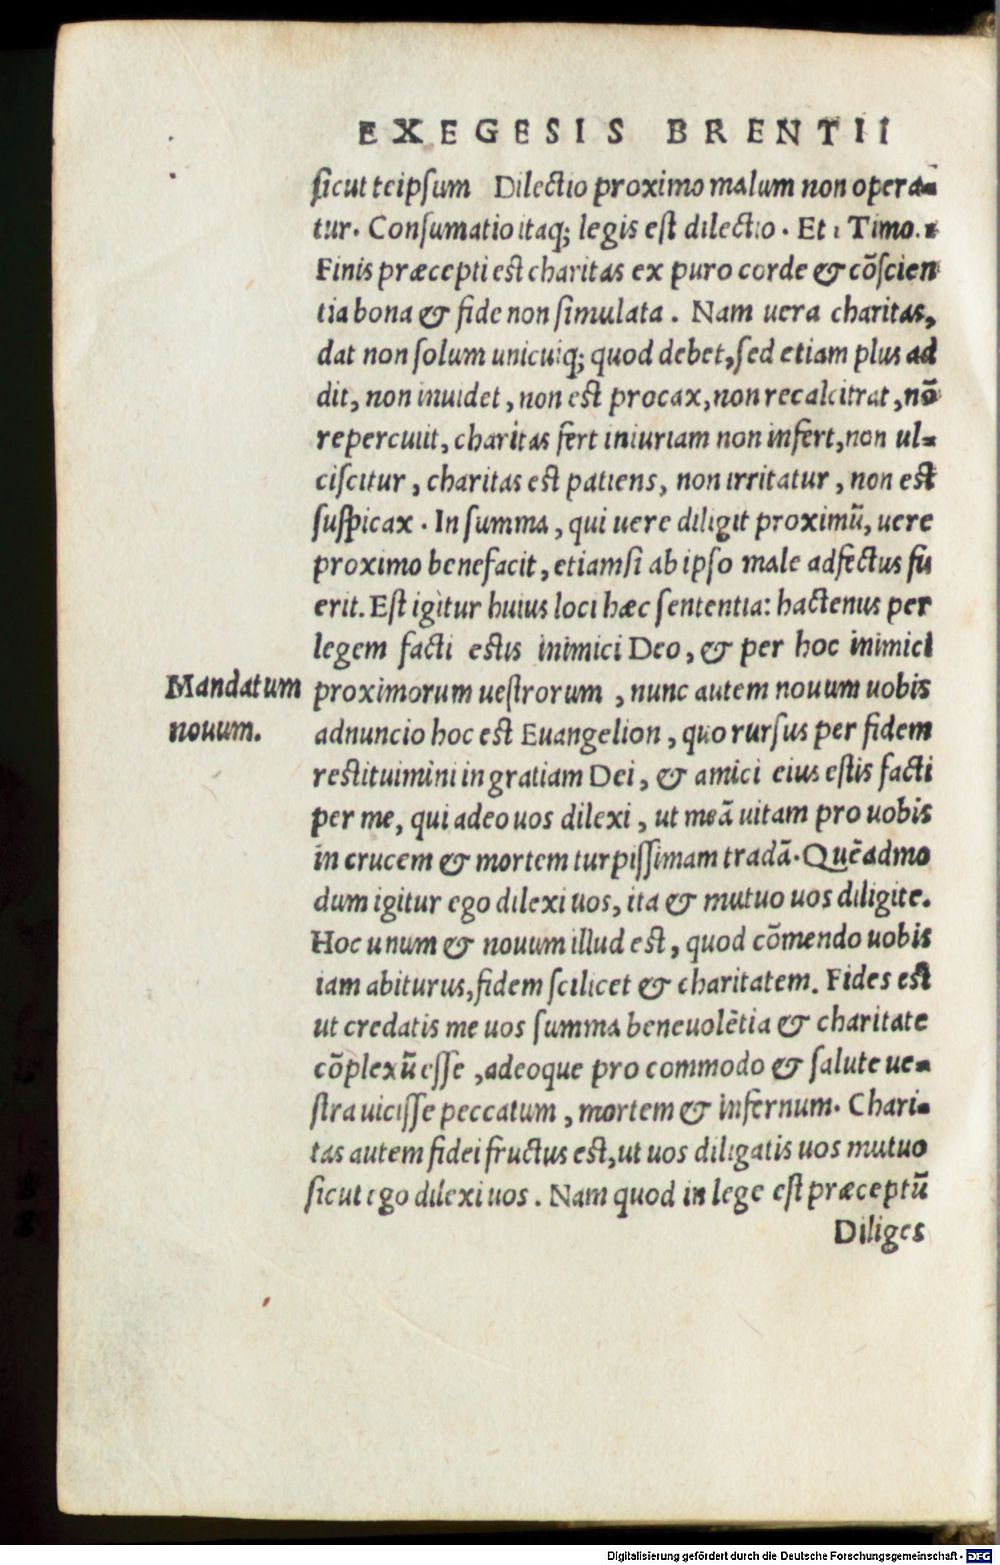 EXEGESIS BRENTII
sicut teipsum Dilectio proximo malum non opera-
tur. Consumatio itaq; legis est dilectio. Et 1 Timo. 1
Finis præcepti est charitas ex puro corde & cõscien
tia bona & fide non simulata. Nam uera charitas,
dat non solum unicuiq; quod debet, sed etiam plus ad
dit, non inuidet, non est procax, non recalcitrat, nõ
repercutit, charitas fert iniuriam non infert, non ul-
ciscitur, charitas est patiens, non irritatur, non est
suspicax. In summa, qui uere diligit proximũ, uere
proximo benefacit, etiamsi ab ipso male adfectus fu
erit. Est igitur huius loci hæc sententia: hactenus per
legem facti estis inimici Deo, & per hoc inimici
Mandatum nouum.
proximorum uestrorum, nunc autem nouum uobis
adnuncio hoc est Euangelion, quo rursus per fidem
restituimini in gratiam Dei, & amici eius estis facti
per me, qui adeo uos dilexi, ut meã uitam pro uobis
in crucem & mortem turpissimam tradã. Quẽadmo
dum igitur ego dilexi uos, ita & mutuo uos diligite.
Hoc unum & nouum illud est, quod cõmendo uobis
iam abiturus, fidem scilicet & charitatem. Fides est
ut credatis me uos summa beneuolẽtia & charitate
cõplexũ esse, adeoque pro commodo & salute ue-
stra uicisse peccatum, mortem & infernum. Chari-
tas autem fidei fructus est, ut uos diligatis uos mutuo
sicut ego dilexi uos. Nam quod in lege est præceptũ
Diliges
Digitalisierung gefördert durch die Deutsche Forschungsgemeinschaft - DFG